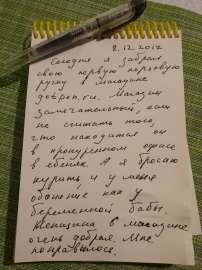 8.12.2017
Сегодня я забрал
свою первую перьевую
ручку в магазине
getpen.ru. Магазин
замечательный, если
не считать того,
что находится он
в прокуренном офисе
в ебенях. А я бросаю
курить, и у меня
обаяние как у
беременной бабы.
Женщина в магазине
очень добрая. Мне
понравилось.